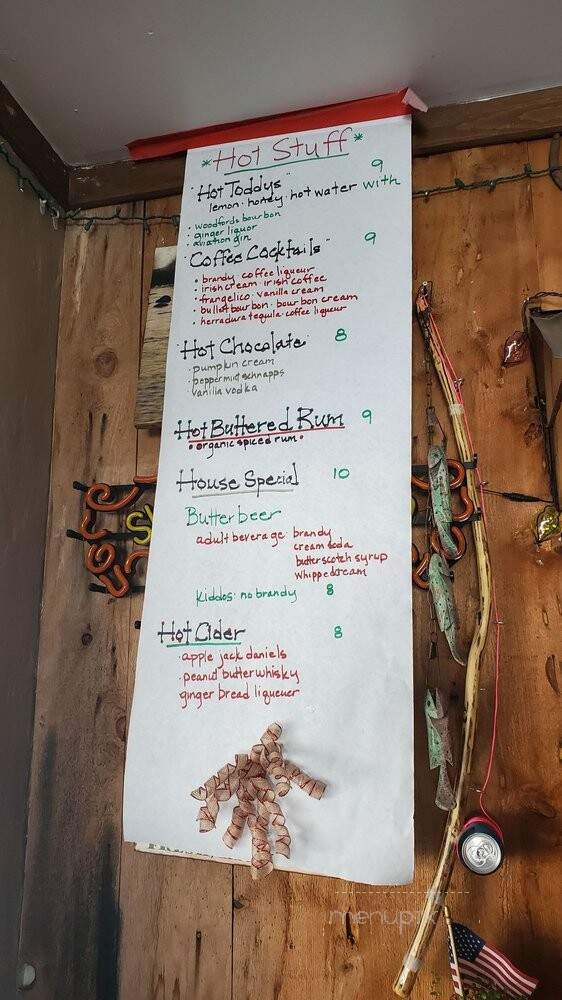 *Hot Stuff*
"Hot Toddys" 9
lemon · honey · hot water with
• woodfords bourbon
• ginger liquor
• aviation gin
"Coffee Cocktails" 9
• brandy · coffee liqueur
• irish cream · irish coffee
• frangelico · vanilla cream
• bullet bourbon · bourbon cream
• herradura tequila · coffee liqueur
"Hot Chocolate" 8
• pumpkin cream
• peppermint schnapps
vanilla vodka
Hot Buttered Rum 9
• organic spiced rum •
House Special 10
Butterbeer
adult beverage: brandy
cream soda
butterscotch syrup
whipped cream
Kiddos: no brandy 8
Hot Cider 8
• apple jack daniels
• peanut butter whisky
ginger bread liqueuer
menupix